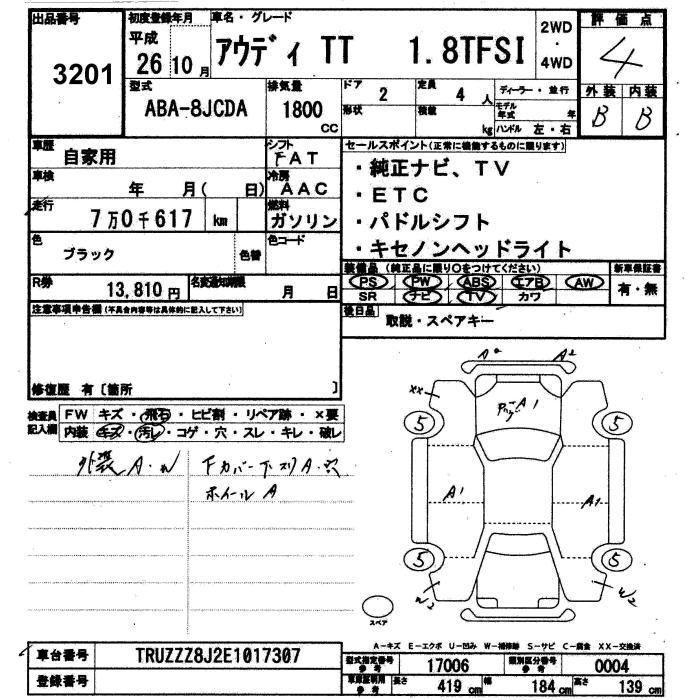 出品番号 初度登録年月 車名・グレード 2WD 評価点
3201 平成 26 10月 アウディ TT 1.8TFSI ・ 4WD 4
型式 排気量 ドア 定員 ディーラー・並行 外装 内装
ABA-8JCDA 1800 CC 2 4 人 B B
形状 積載 kg モデル年式 年 ハンドル 左・右
車歴 自家用 シフト FAT セールスポイント(正常に機能するものに限ります)
車検 年 月( 日) 冷房 AAC ・純正ナビ、TV
・ETC
走行 7万0千617 km 燃料 ガソリン ・パドルシフト
色 ブラック 色替 色コード ・キセノンヘッドライト
装備品(純正品に限り○をつけてください) 新車保証書
PS PW ABS エアB AW 有・無
SR ナビ TV カワ
R券 13,810円 名変通知期限 月 日
後日品 取説・スペアキー
注意事項申告欄(不具合内容等は具体的に記入して下さい)
修復歴 有〔箇所 〕
検査員記入欄 FW キズ・飛石・ヒビ割・リペア跡・×要
内装 キズ・汚レ・コゲ・穴・スレ・キレ・破レ
外装A・W 下カバー下スリA・
ホイールA
A2
XX A1
5 5
A1 A1
5 5
W2 W2
スペア
A-キズ E-エクボ U-凹み W-補修跡 S-サビ C-腐食 XX-交換済
車台番号 TRUZZZ8J2E1017307
型式指定番号 参考 17006 類別区分番号 参考 0004
登録番号
車庫証明用 参考 長さ 419 cm 幅 184 cm 高さ 139 cm